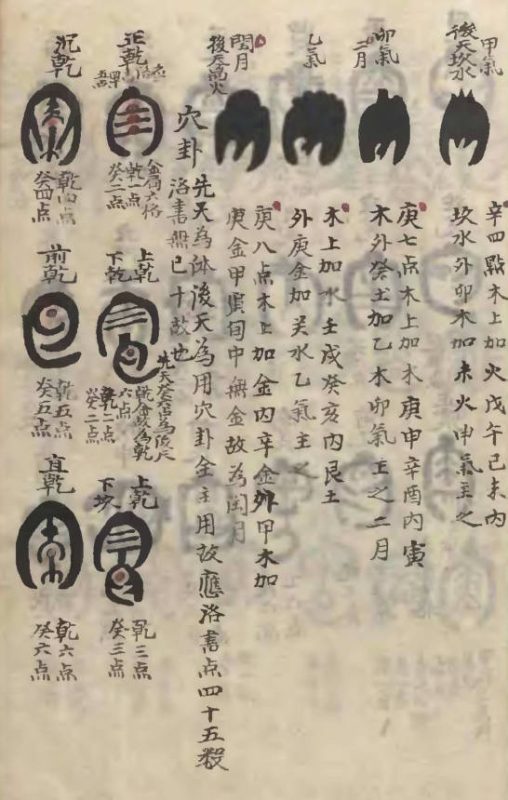 甲氣
後天坎水
辛四點木上加火戊午己未內
坎水外卯木加未火申氣主之
卯氣
二月
庚七点木上加木庚申辛酉內寅
木外癸土加乙木卯氣主之二月
乙氣
木上加水壬戌癸亥內艮土
外庚金加癸水乙氣主之
閏月
後天离火
庚八点木上加金內辛金外甲木加
庚金甲寅旬中無金故為閏月
穴卦
先天為体後天為用穴卦全主用故應洛書点四十五殺
洛書無已十故也
正乾
金局六格
乾一点
癸二点
上乾
下乾
先天癸宮為後天
乾金故為乾
六点
乾二点
癸二点
上乾
下坎
乾三点
癸三点
沉乾
乾四点
癸四点
前乾
乾五点
癸五点
直乾
乾六点
癸六点